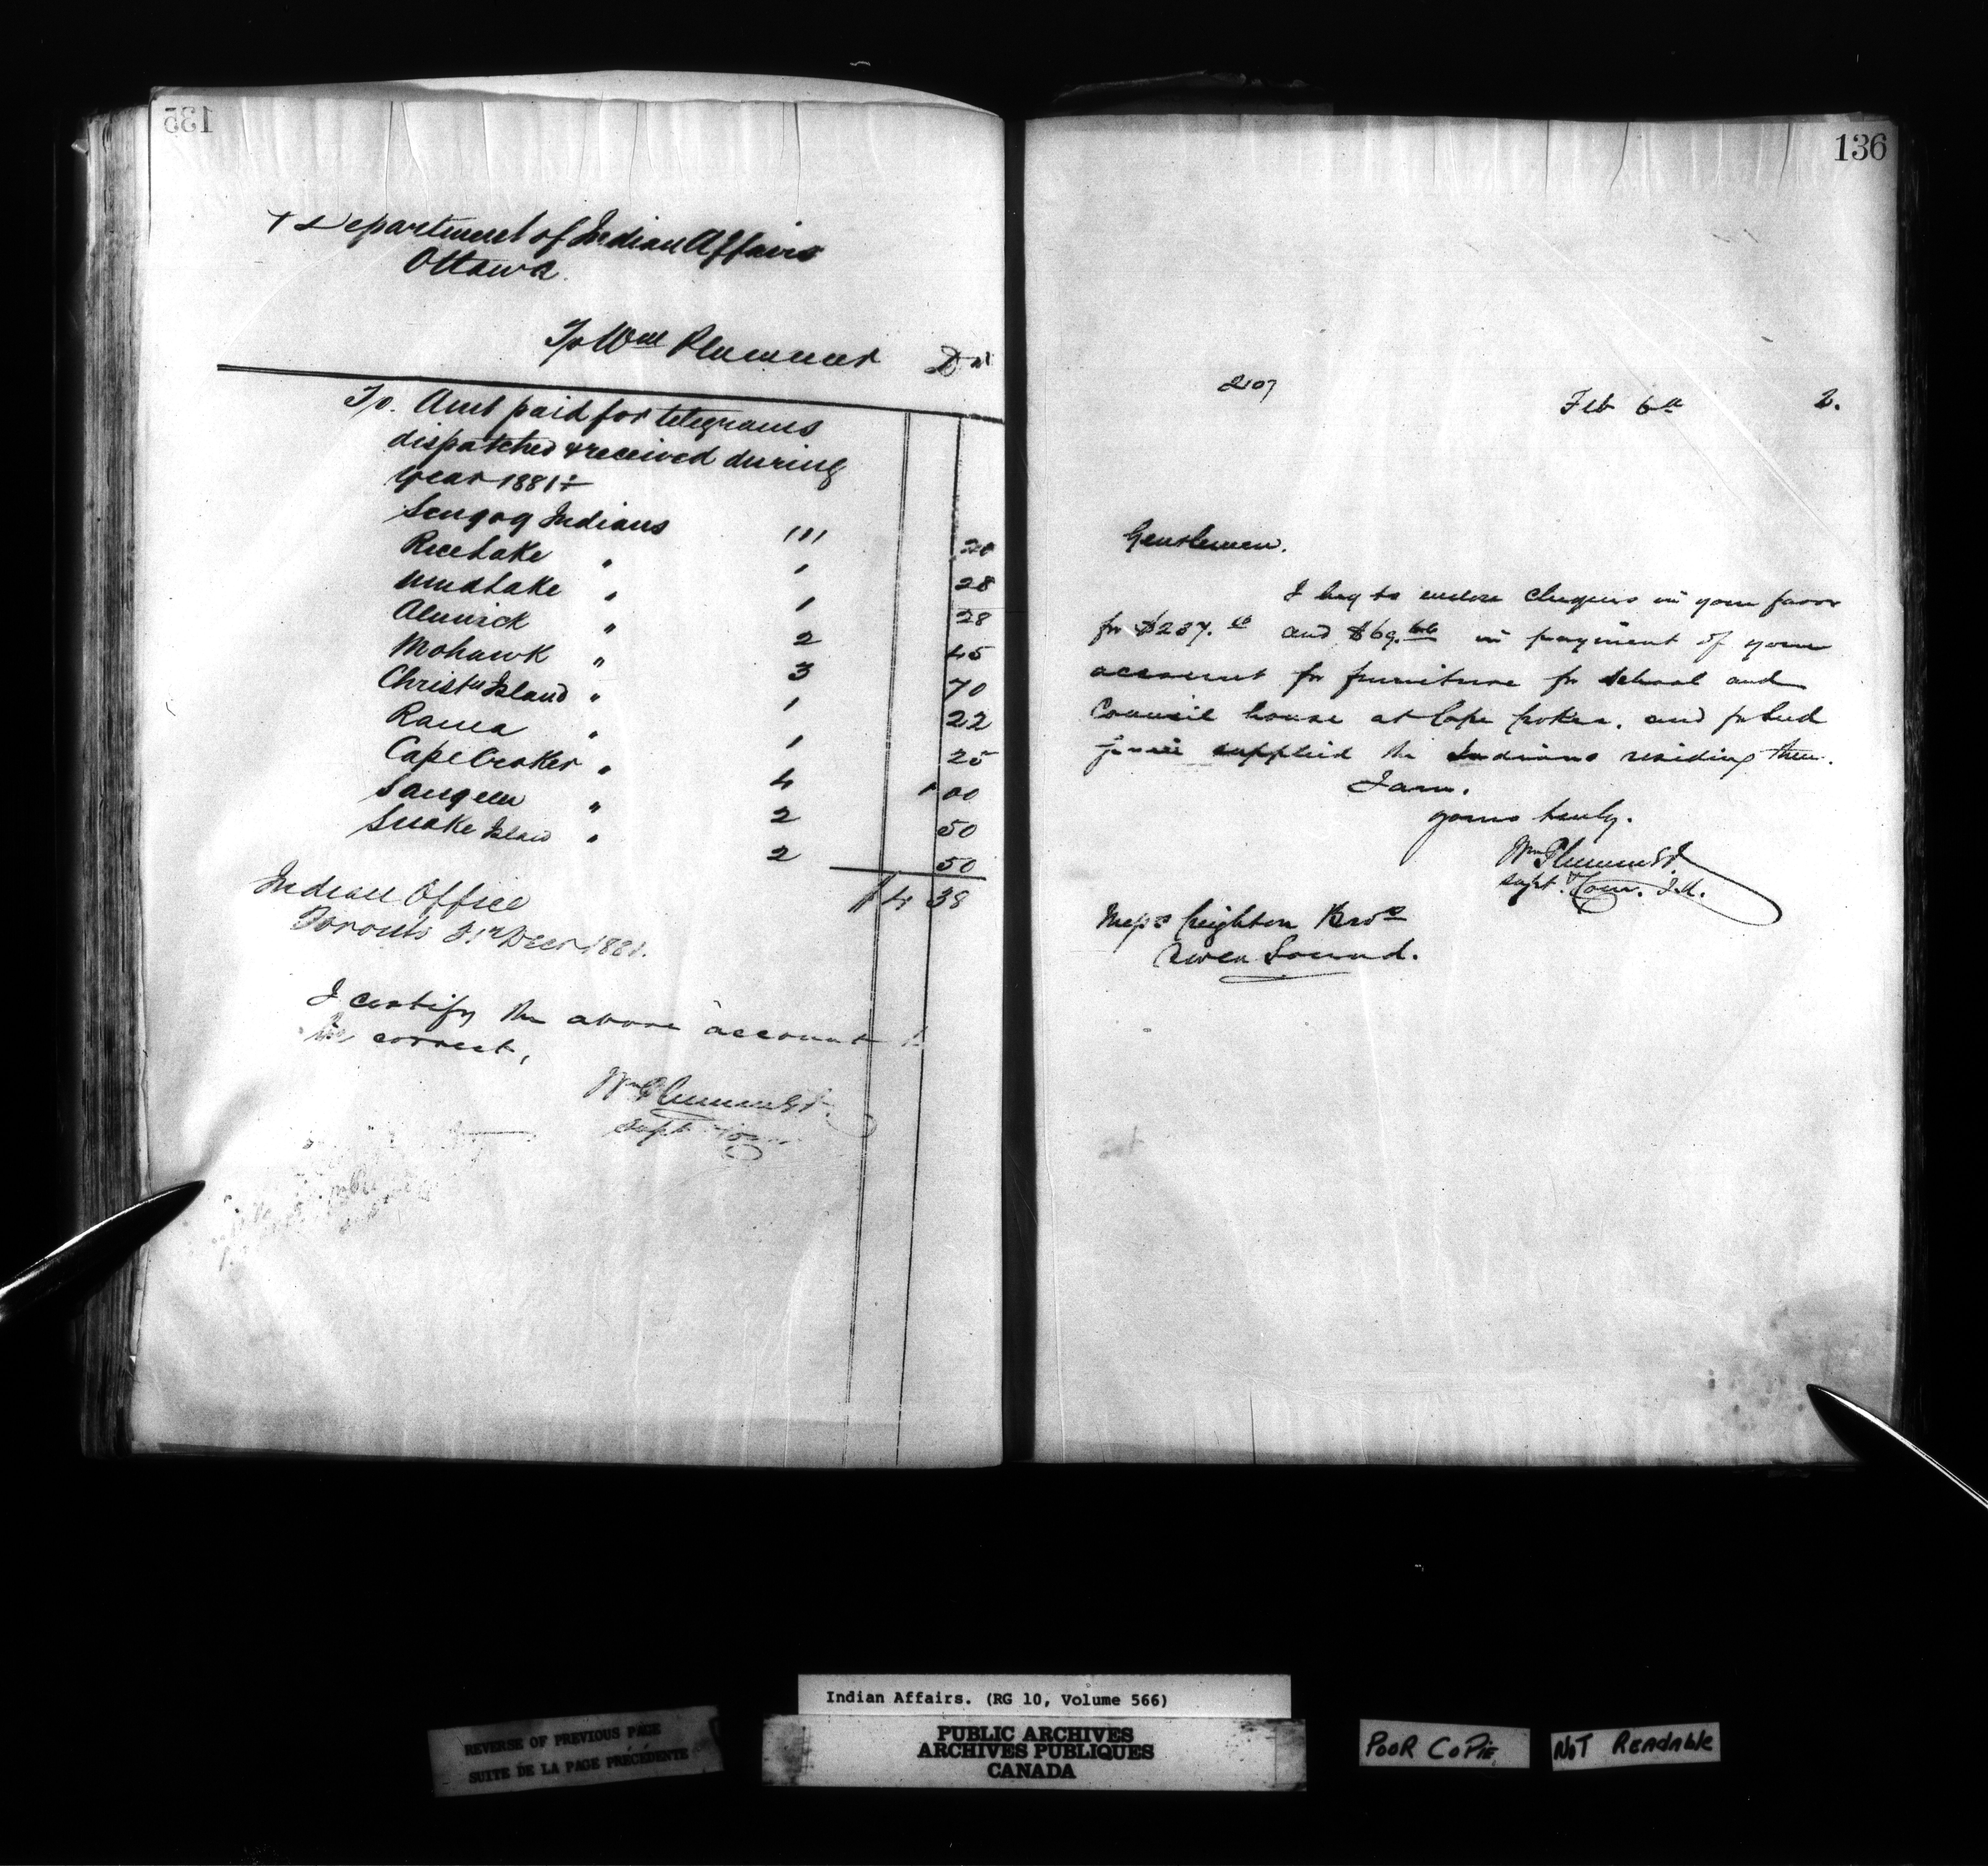 135
Department of Indian Affairs
Ottawa.
To Wm Plummer Dr
To. Amt paid for telegrams
dispatched & received during
year 1881:
Scugog Indians 1 20
Rice Lake " 1 28
Mud Lake " 1 28
Alnwick " 2 45
Mohawk " 3 70
Christn Island " 1 22
Rama " 1 25
Cape Croker " 4 1 00
Saugeen " 2 50
Snake Island " 2 50
$4 38
Indian Office
Toronto 31st Decr 1881.
I certify the above account to
be correct,
Wm Plummer
Supt
136
2107 Feb 6th 2.
Gentlemen.
I beg to enclose cheques in your favor
for $237. and $69. in payment of your
account for furniture for school and
Council house at Cape Croker. and for
supplied the Indians residing there.
I am.
yours truly.
Wm Plummer
Supt. & Com. I.A.
Messrs Creighton Bros
Owen Sound.
Indian Affairs. (RG 10, Volume 566)
REVERSE OF PREVIOUS PAGE
SUITE DE LA PAGE PRÉCÉDENTE
PUBLIC ARCHIVES
ARCHIVES PUBLIQUES
CANADA
POOR COPIE
NOT READABLE